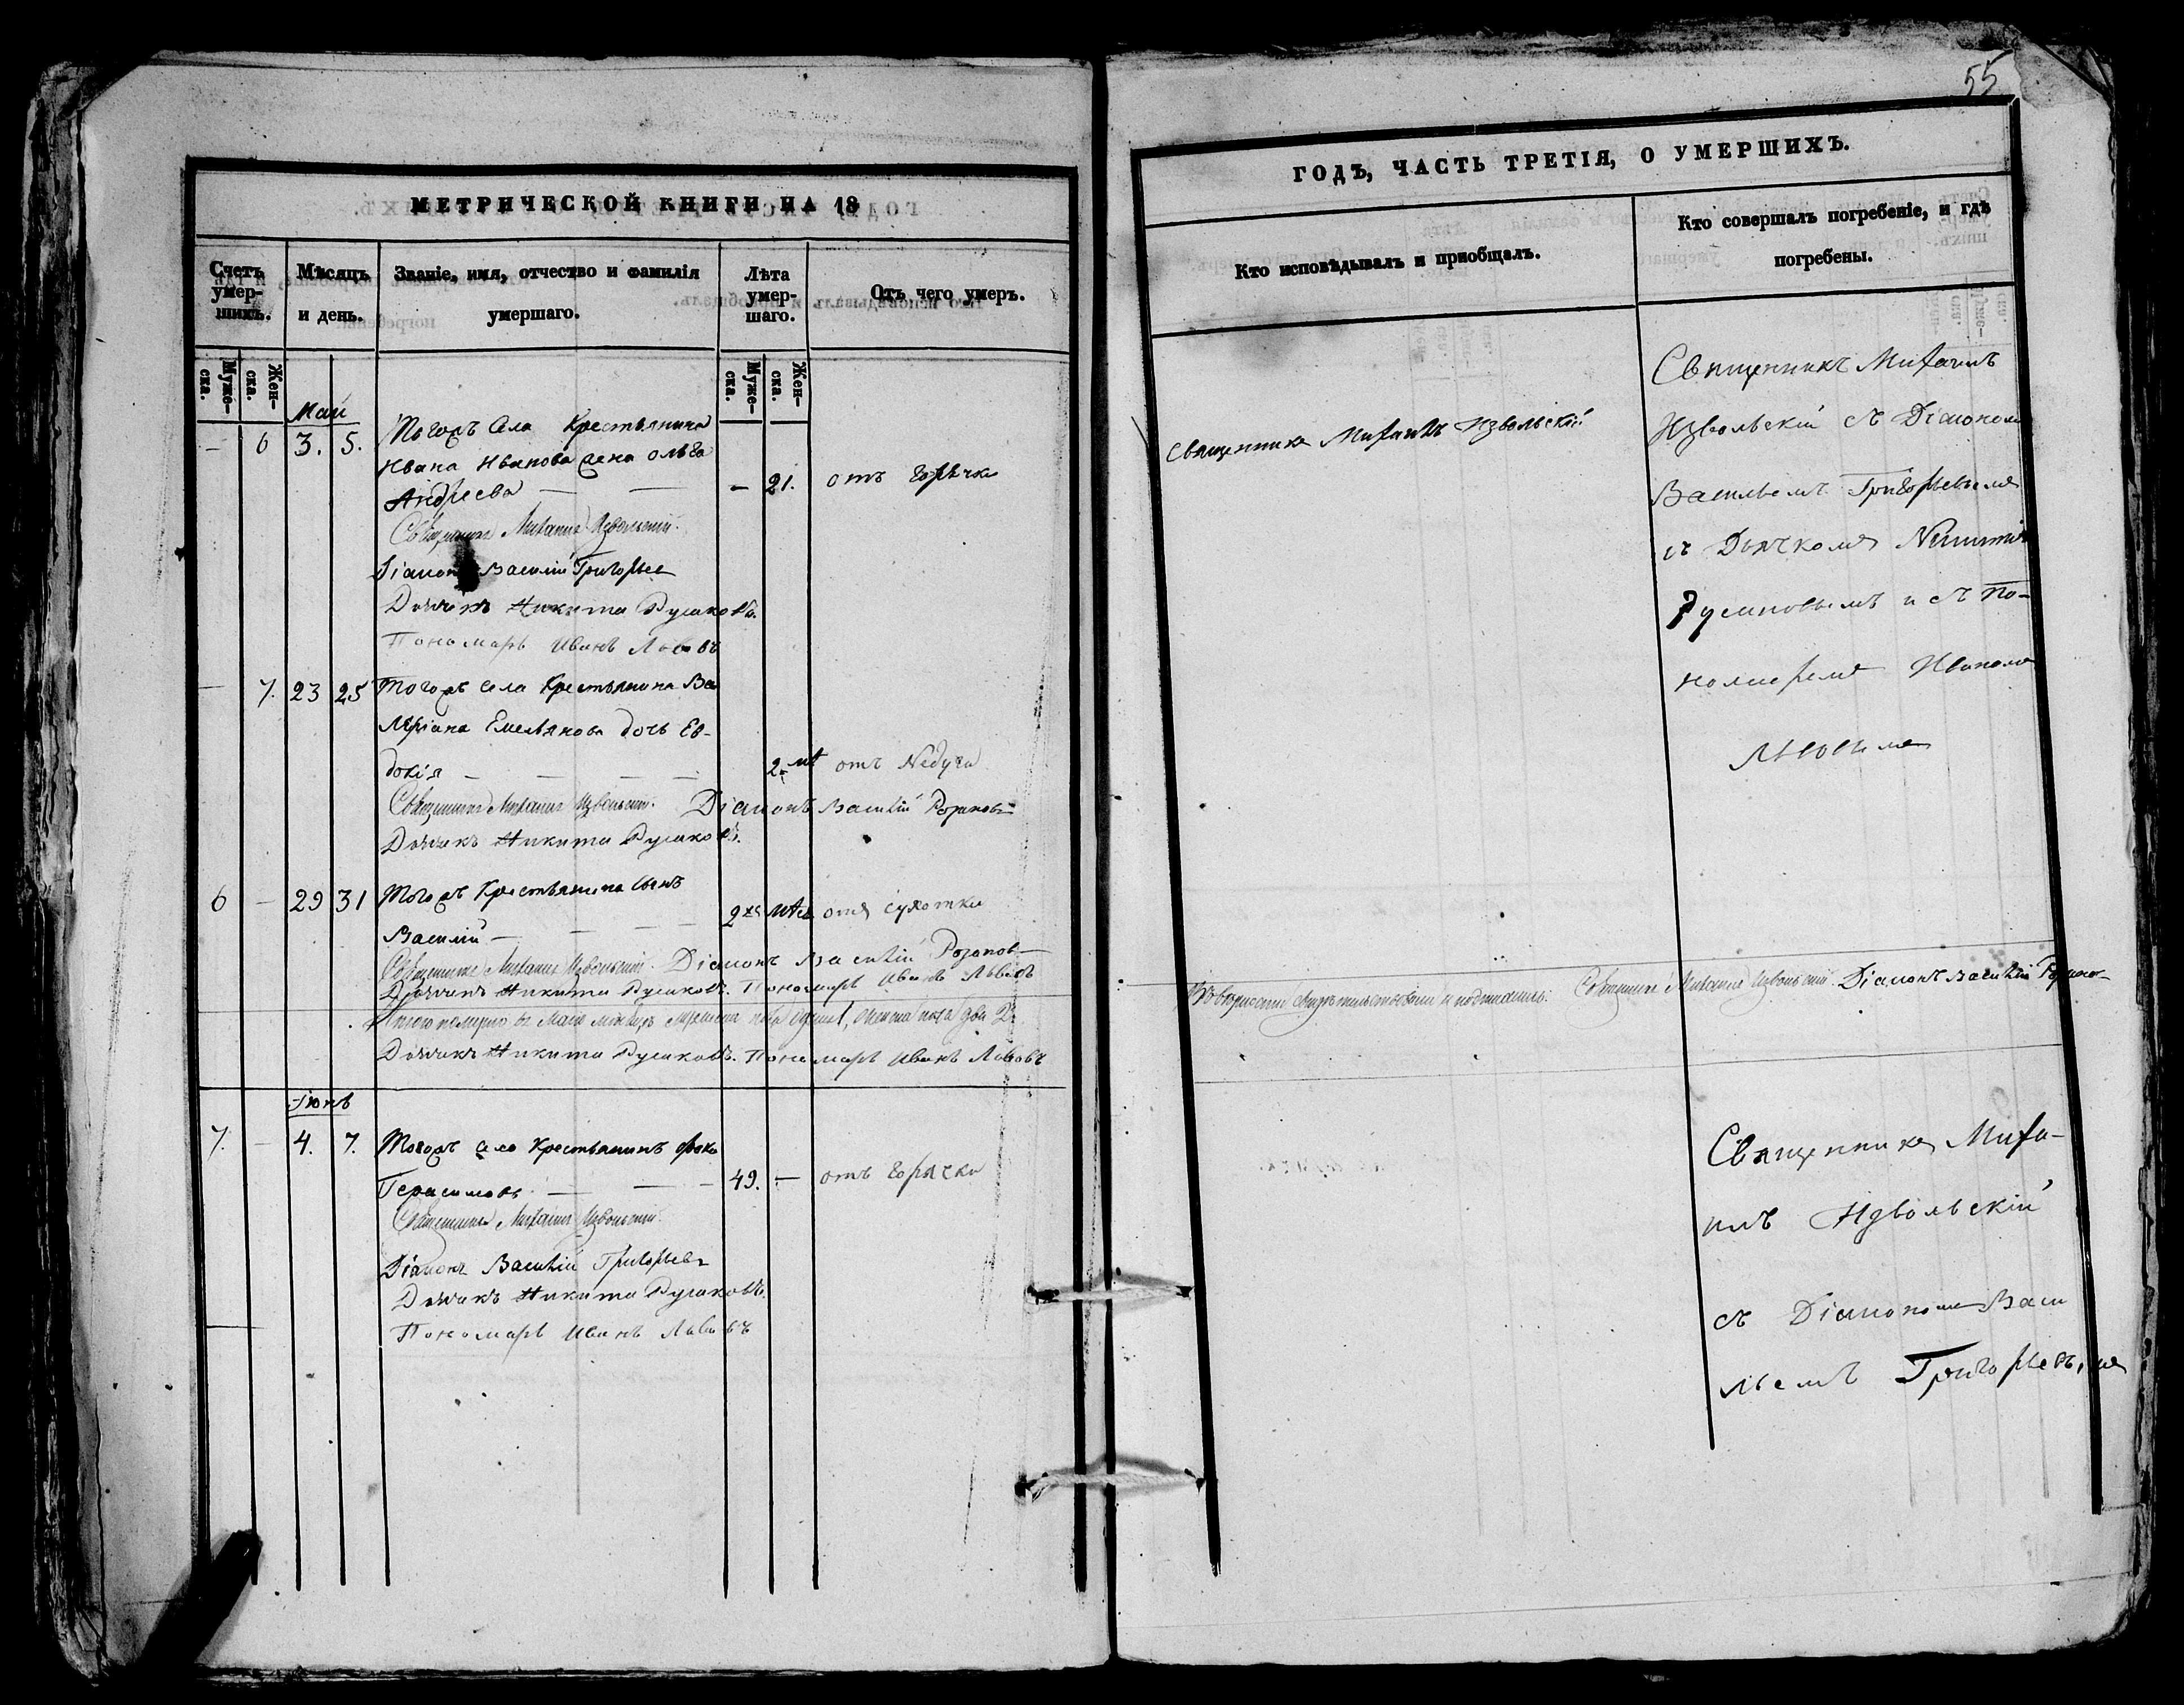 55
МЕТРИЧЕСКОЙ КНИГИ НА 18
Счетъ умер-шихъ.
Мѣсяцъ и день.
Званіе, имя, отчество и фамилія умершаго.
Лѣта умер-шаго.
Отъ чего умеръ.
Муже-ска.
Жен-ска.
Муже-ска.
Жен-ска.
Май
— 6 3. 5. Тогожъ Села Крестьянина
Ивана Иванова жена Ольга
Андреева — — — 21. отъ горячки
Священникъ Михаилъ Извольскій.
Діаконъ Василій Григорьев
Дьячекъ Никита Русаковъ.
Пономарь Иванъ Львовъ
— 7. 23 25 Тогожъ села Крестьянина Ва
леріана Емельянова дочь Ев-
докія — — — — 2. отъ Недуга
Священникъ Михаилъ Извольскій. Діаконъ Василій Розанов
Дьячекъ Никита Русаковъ.
6 — 29 31 Тогожъ Крестьянина сынъ
Василій — — — — 2хъ лѣтъ отъ сухотки
Священникъ Михаилъ Извольскій. Діаконъ Василій Розанов
Дьячекъ Никита Русаковъ. Пономарь Иванъ Львовъ
Итого померло въ Маѣ мѣсяцѣ мужеска пола одинъ 1, женска пола два 2.
Дьячекъ Никита Русаковъ. Пономарь Иванъ Львовъ
Іюнь
7. — 4. 7. Тогожъ села Крестьянинъ Фока
Герасимовъ — — — 49. — отъ горячки
Священникъ Михаилъ Извольскій.
Діаконъ Василій Григорьев
Дьячекъ Никита Русаковъ.
Пономарь Иванъ Львовъ
ГОДЪ, ЧАСТЬ ТРЕТІЯ, О УМЕРШИХЪ.
Кто исповѣдывалъ и пріобщалъ.
Кто совершалъ погребеніе, и гдѣ погребены.
Священникъ Михаилъ Извольскій
Священникъ Михаилъ
Извольскій съ Діакономъ
Васильемъ Григорьевымъ
съ Дьячкомъ Никитой
Русаковымъ и съ По-
номаремъ Иваномъ
Львовымъ
Священникъ Михаилъ Извольскій. Діаконъ Василій Розанов
Священникъ Миха-
илъ Извольскій
съ Діакономъ Васи
льемъ Григорьевымъ